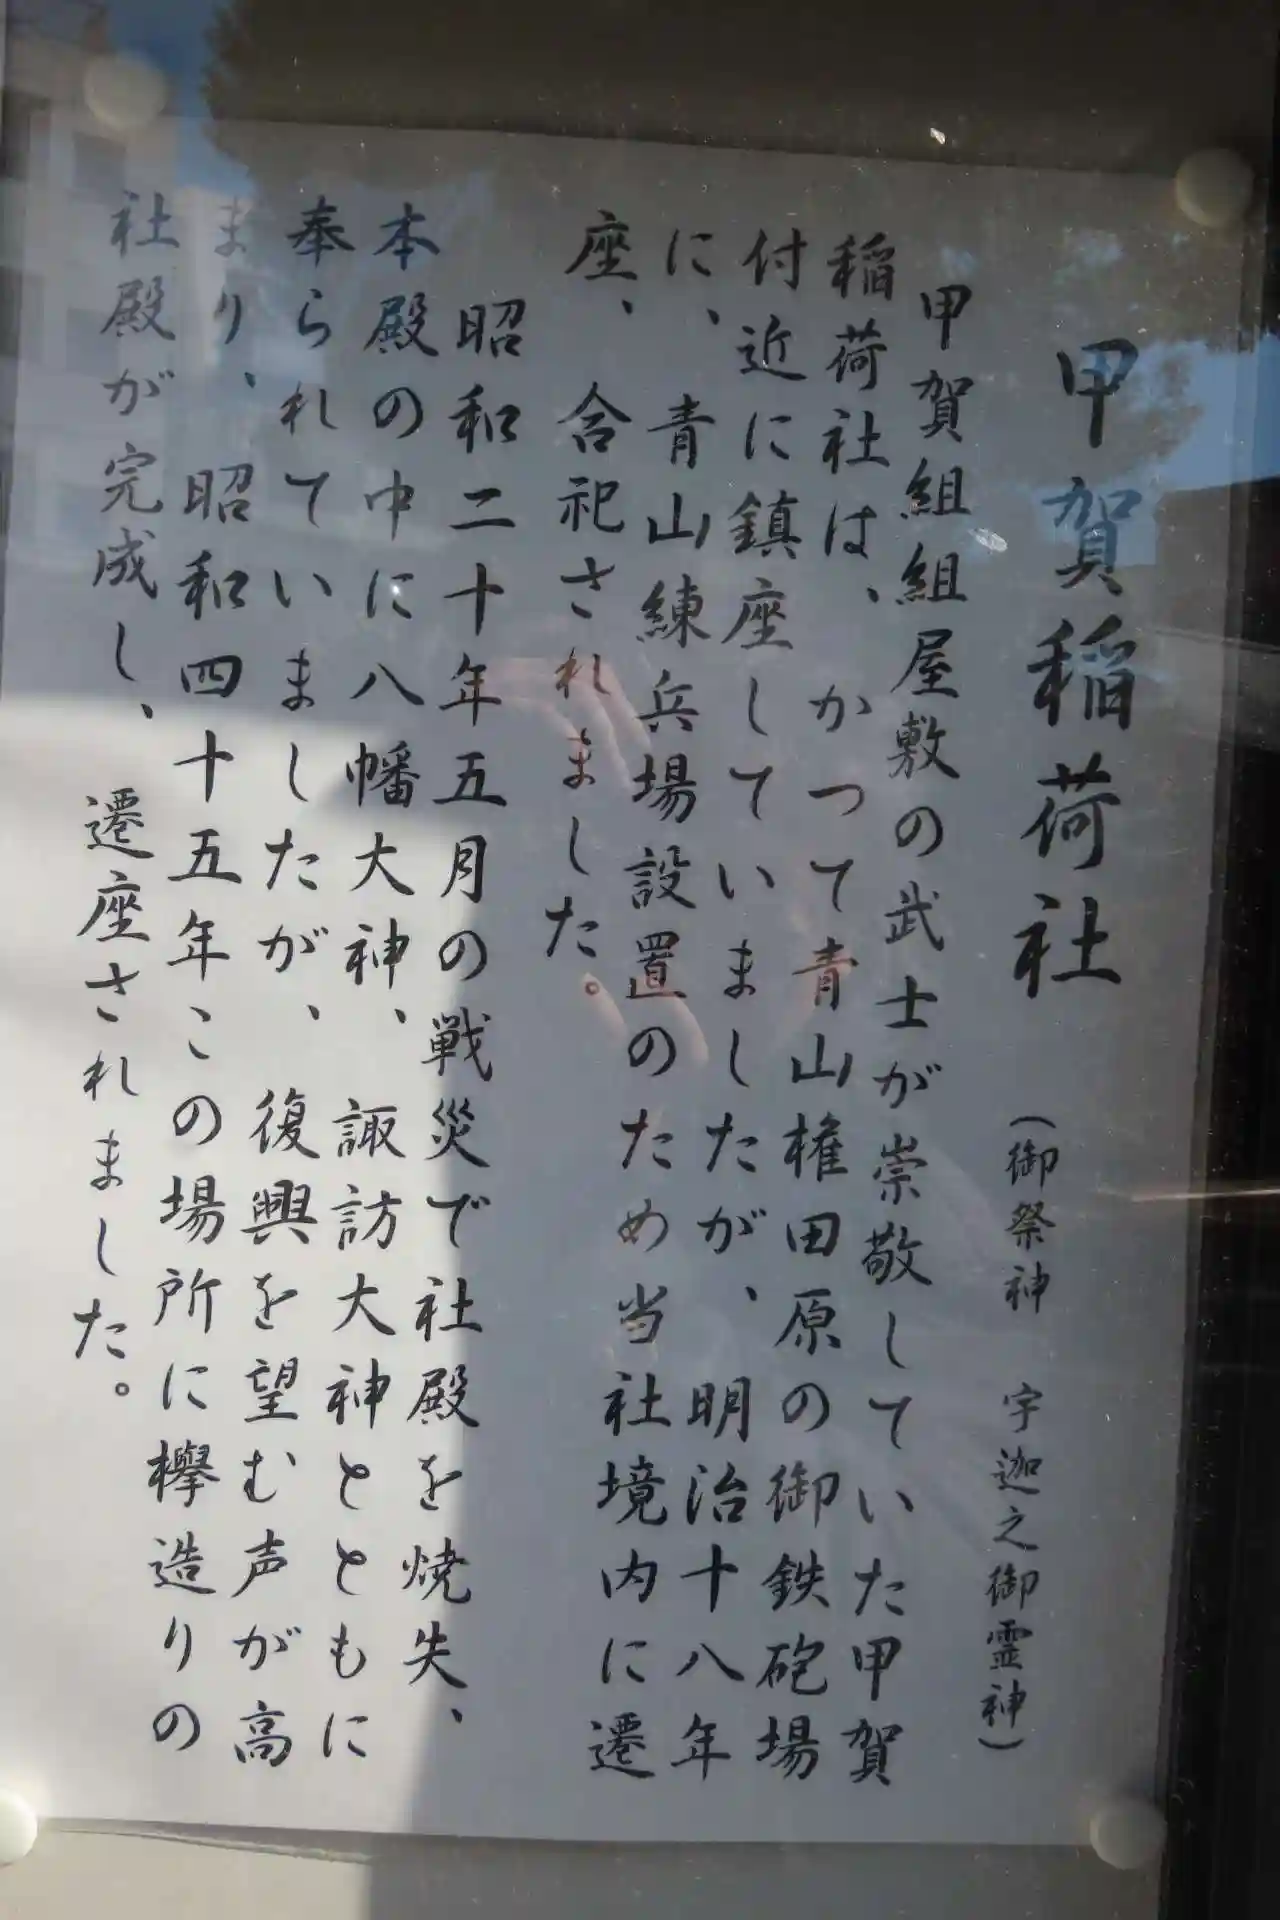 甲賀稲荷社
（御祭神 宇迦之御霊神）
甲賀組組屋敷の武士が崇敬していた甲賀
稲荷社は、かつて青山権田原の御鉄砲場
付近に鎮座していましたが、明治十八年
に、青山練兵場設置のため当社境内に遷
座、合祀されました。
昭和二十年五月の戦災で社殿を焼失、
本殿の中に八幡大神、諏訪大神とともに
奉られていましたが、復興を望む声が高
まり、昭和四十五年この場所に欅造りの
社殿が完成し、遷座されました。